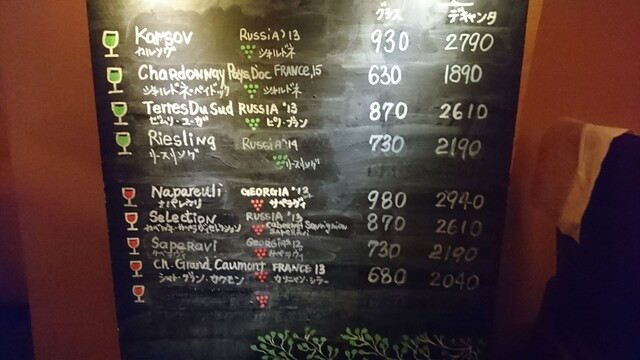 グラス デキャンタ
Karsov RUSSIA '13 930 2790
カルソヴ シャルドネ
Chardonnay Pays Doc FRANCE,15 630 1890
シャルドネ・ペイドック シャルドネ
Terres Du Sud RUSSIA '13 870 2610
ピノ・ブラン
Riesling RUSSIA '14 730 2190
リースリング リースリング
Napareuli GEORGIA '13 980 2940
ナパレウリ サペラヴィ
Selection RUSSIA '13 870 2610
Cabernet Sauvignion
Saperavi
Saperavi GEORGIA '12 730 2190
サペラヴィ サペラヴィ
Ch. Grand Caumont FRANCE 13 680 2040
シャト・グラン・カウモン カリニャン・シラー